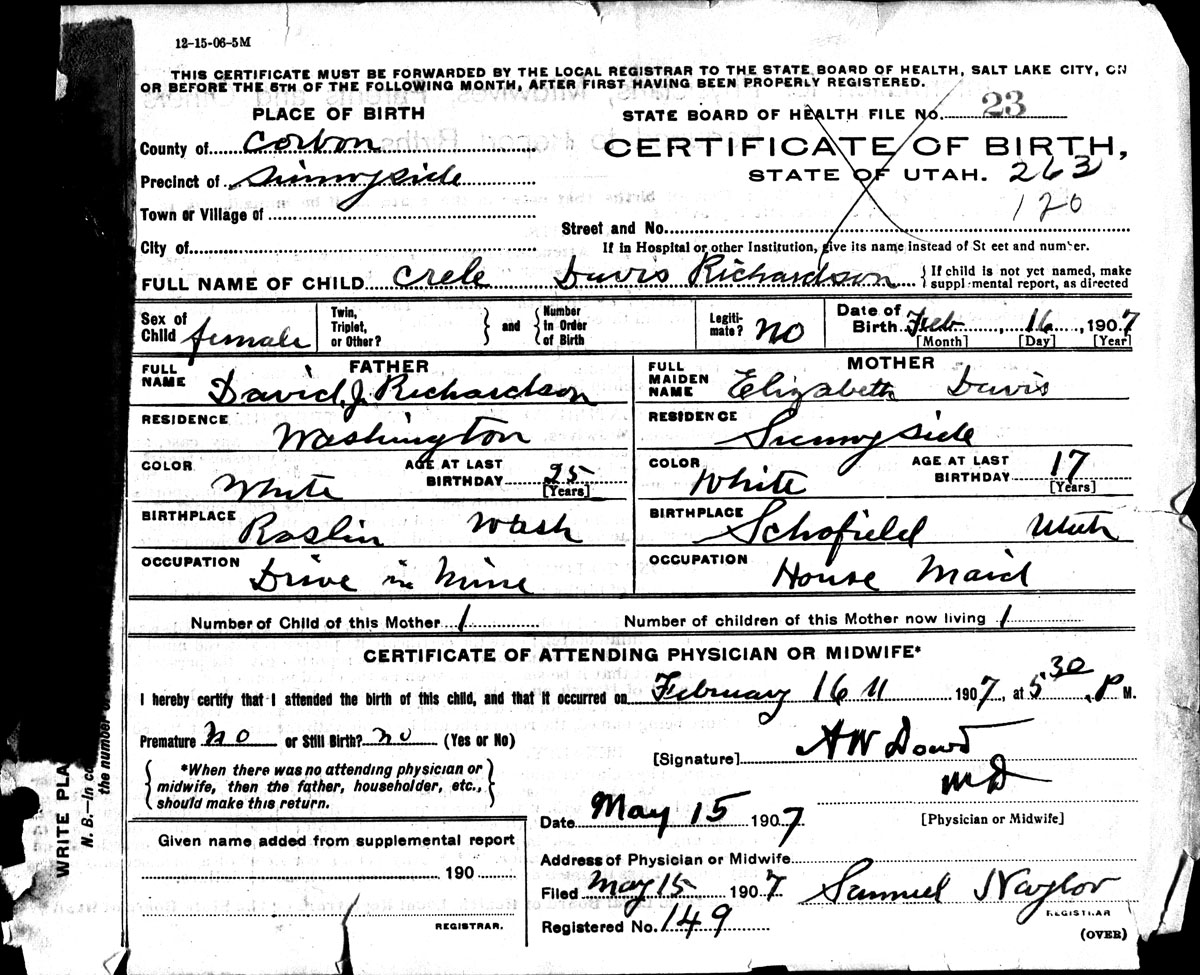 12-15-06-5M
THIS CERTIFICATE MUST BE FORWARDED BY THE LOCAL REGISTRAR TO THE STATE BOARD OF HEALTH, SALT LAKE CITY, ON
OR BEFORE THE 5TH OF THE FOLLOWING MONTH, AFTER FIRST HAVING BEEN PROPERLY REGISTERED.
PLACE OF BIRTH
County of Corbon
Precinct of Sunnyside
Town or Village of
City of
STATE BOARD OF HEALTH FILE No. 23
CERTIFICATE OF BIRTH,
STATE OF UTAH. 263
120
Street and No.
If in Hospital or other Institution, give its name instead of St eet and number.
FULL NAME OF CHILD Crele Davis Richardson { If child is not yet named, make
suppl mental report, as directed
Sex of Child female
Twin, Triplet, or Other? } and { Number in Order of Birth
Legiti-mate? no
Date of Birth Feb, 16, 1907
[Month] [Day] [Year]
FATHER
FULL NAME David J. Richardson
RESIDENCE Washington
COLOR White AGE AT LAST BIRTHDAY 25 [Years]
BIRTHPLACE Roslin Wash
OCCUPATION Drive in Mine
MOTHER
FULL MAIDEN NAME Elizabeth Davis
RESIDENCE Sunnyside
COLOR White AGE AT LAST BIRTHDAY 17 [Years]
BIRTHPLACE Schofield Utah
OCCUPATION House Maid
Number of Child of this Mother 1 Number of children of this Mother now living 1
CERTIFICATE OF ATTENDING PHYSICIAN OR MIDWIFE*
I hereby certify that I attended the birth of this child, and that it occurred on February 16 1907, at 5 30, P M.
Premature no or Still Birth? no (Yes or No)
{ *When there was no attending physician or
midwife, then the father, householder, etc.,
should make this return. }
[Signature] A W Dowd
MD
[Physician or Midwife]
Date May 15 1907
Given name added from supplemental report
190
REGISTRAR.
Address of Physician or Midwife
Filed May 15 1907 Samuel Naylor
REGISTRAR
Registered No. 149
(OVER)
WRITE PLA
N. B.—In ca
the number o